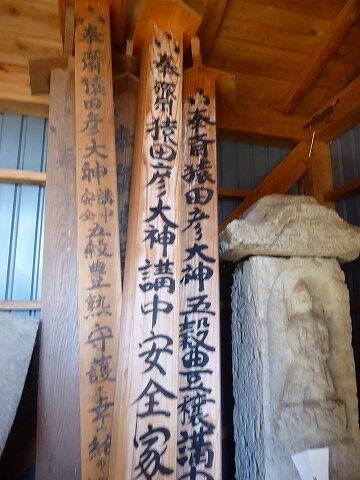 奉齋猿田彦大神講中安全五穀豊熟守護幸給
奉齋猿田彦大神講中安全家
奉齋猿田彦大神五穀豊穣講中